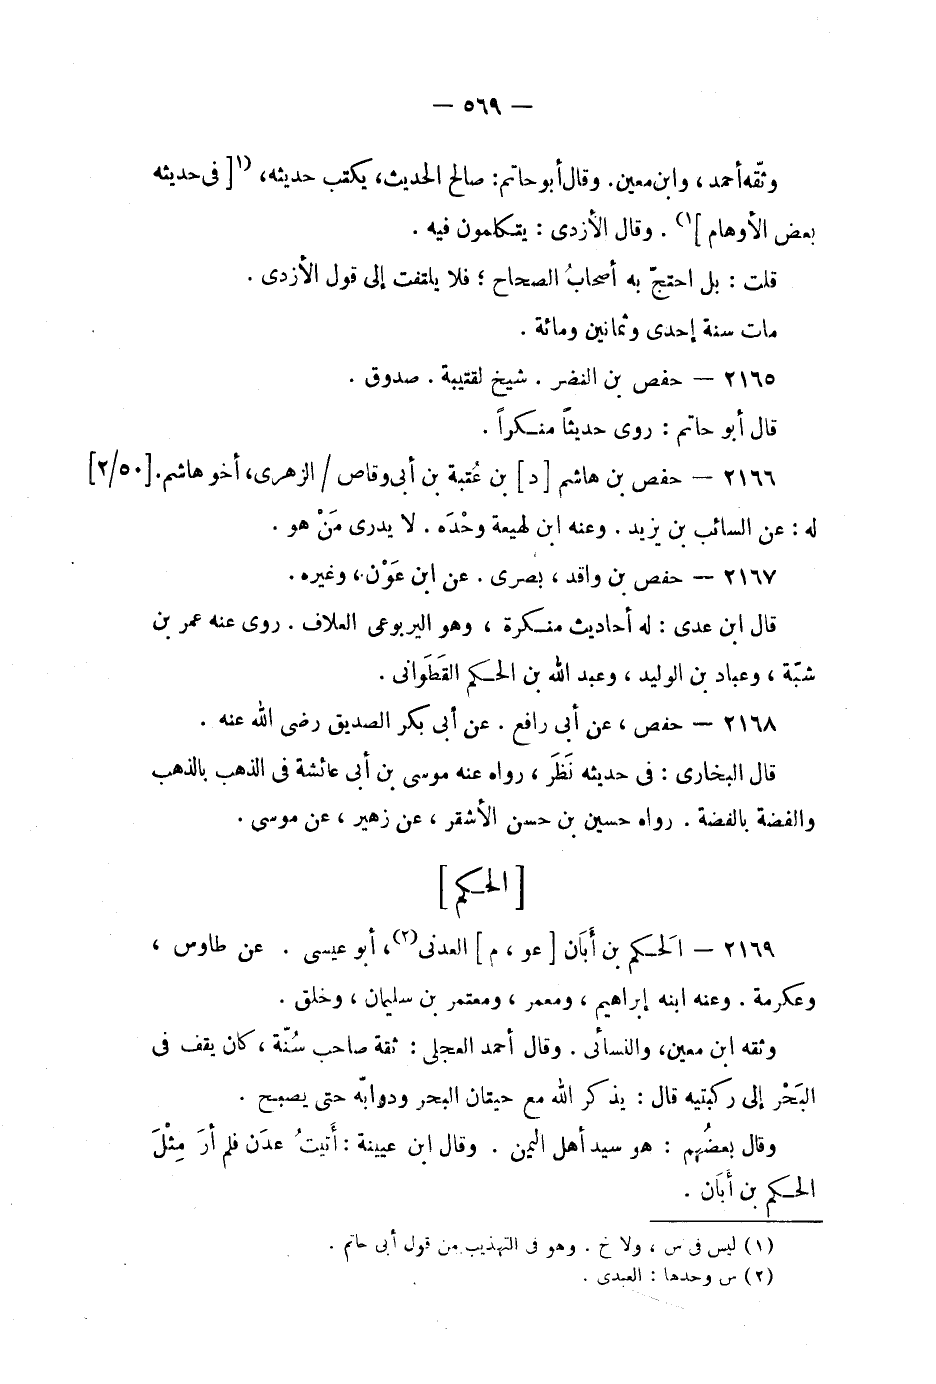 — ٥٦٩ —
وثّقه أحمد ، وابن معين. وقال أبو حاتم: صالح الحديث، يكتب حديثه، (١[ فى حديثه
بعض الأوهام ]١) . وقال الأزدى : يتكلمون فيه .
قلت : بل احتجّ به أصحابُ الصحاح ؛ فلا يلتفت إلى قول الأزدى .
مات سنة إحدى وثمانين ومائة .
٢١٦٥ — حفص بن النضر . شيخ لقتيبة . صدوق .
قال أبو حاتم : روى حديثاً منكراً .
٢١٦٦ — حفص بن هاشم [ د ] بن عُتبة بن أبى وقاص / الزهرى، أخو هاشم. [٢/٥٠]
له : عن السائب بن يزيد . وعنه ابن لهيعة وحْدَه . لا يدرى مَنْ هو .
٢١٦٧ — حفص بن واقد ، بصرى . عن ابن عَوْن، وغيره.
قال ابن عدى : له أحاديث منكرة ، وهو اليربوعى العلاف . روى عنه عمر بن
شبّة ، وعباد بن الوليد ، وعبد الله بن الحكم القَطَوانى .
٢١٦٨ — حفص ، عن أبى رافع . عن أبى بكر الصديق رضى الله عنه .
قال البخارى : فى حديثه نَظَر ، رواه عنه موسى بن أبى عائشة فى الذهب بالذهب
والفضة بالفضة . رواه حسين بن حسن الأشقر ، عن زهير ، عن موسى .
[ الحكم ]
٢١٦٩ — الَحكم بن أَبَان [ عو ، م ] العدنى(٢)، أبو عيسى . عن طاوس ،
وعكرمة . وعنه ابنه إبراهيم ، ومعمر ، ومعتمر بن سليمان ، وخلق .
وثقه ابن معين، والنسائى . وقال أحمد العجلى : ثقة صاحب سُنّة ، كان يقف فى
البَحْر إلى ركبتيه قال : يذكر الله مع حيتان البحر ودوابّه حتى يصبح .
وقال بعضُهم : هو سيد أهل اليمن . وقال ابن عيينة : أَتيتُ عدَن فلم أرَ مِثْلَ
الحكم بن أَبَان .
(١) ليس فى س ، ولا خ . وهو فى التهذيب من قول أبى حاتم .
(٢) س وحدها : العبدى .